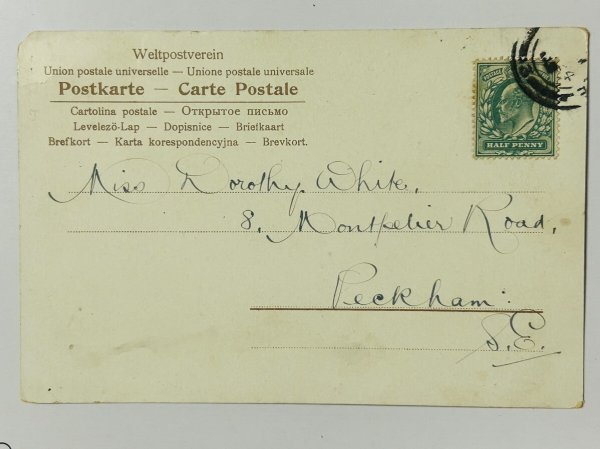 Weltpostverein
Union postale universelle — Unione postale universale
Postkarte — Carte Postale
Cartolina postale — Открытое письмо
Levelező-Lap — Dopisnice — Briefkaart
Brefkort — Karta korespondencyjna — Brevkort.
POSTAGE
HALF PENNY
Miss Dorothy White,
8. Montpelier Road,
Peckham.
S.E.